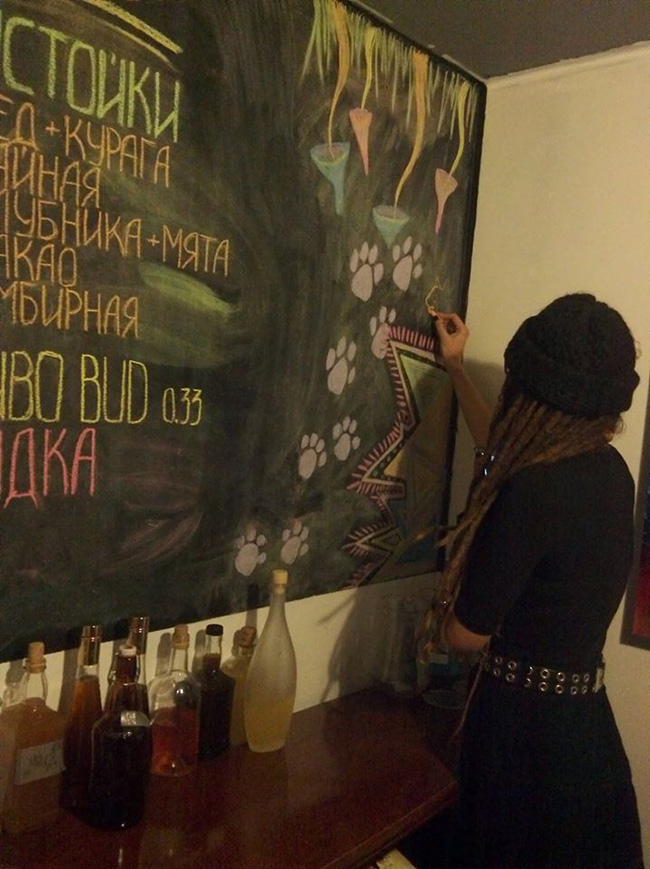 СТОЙКИ
ЕД+КУРАГА
АЙНАЯ
ЛУБНИКА+МЯТА
АКАО
МБИРНАЯ
BUD 0.33
ДКА